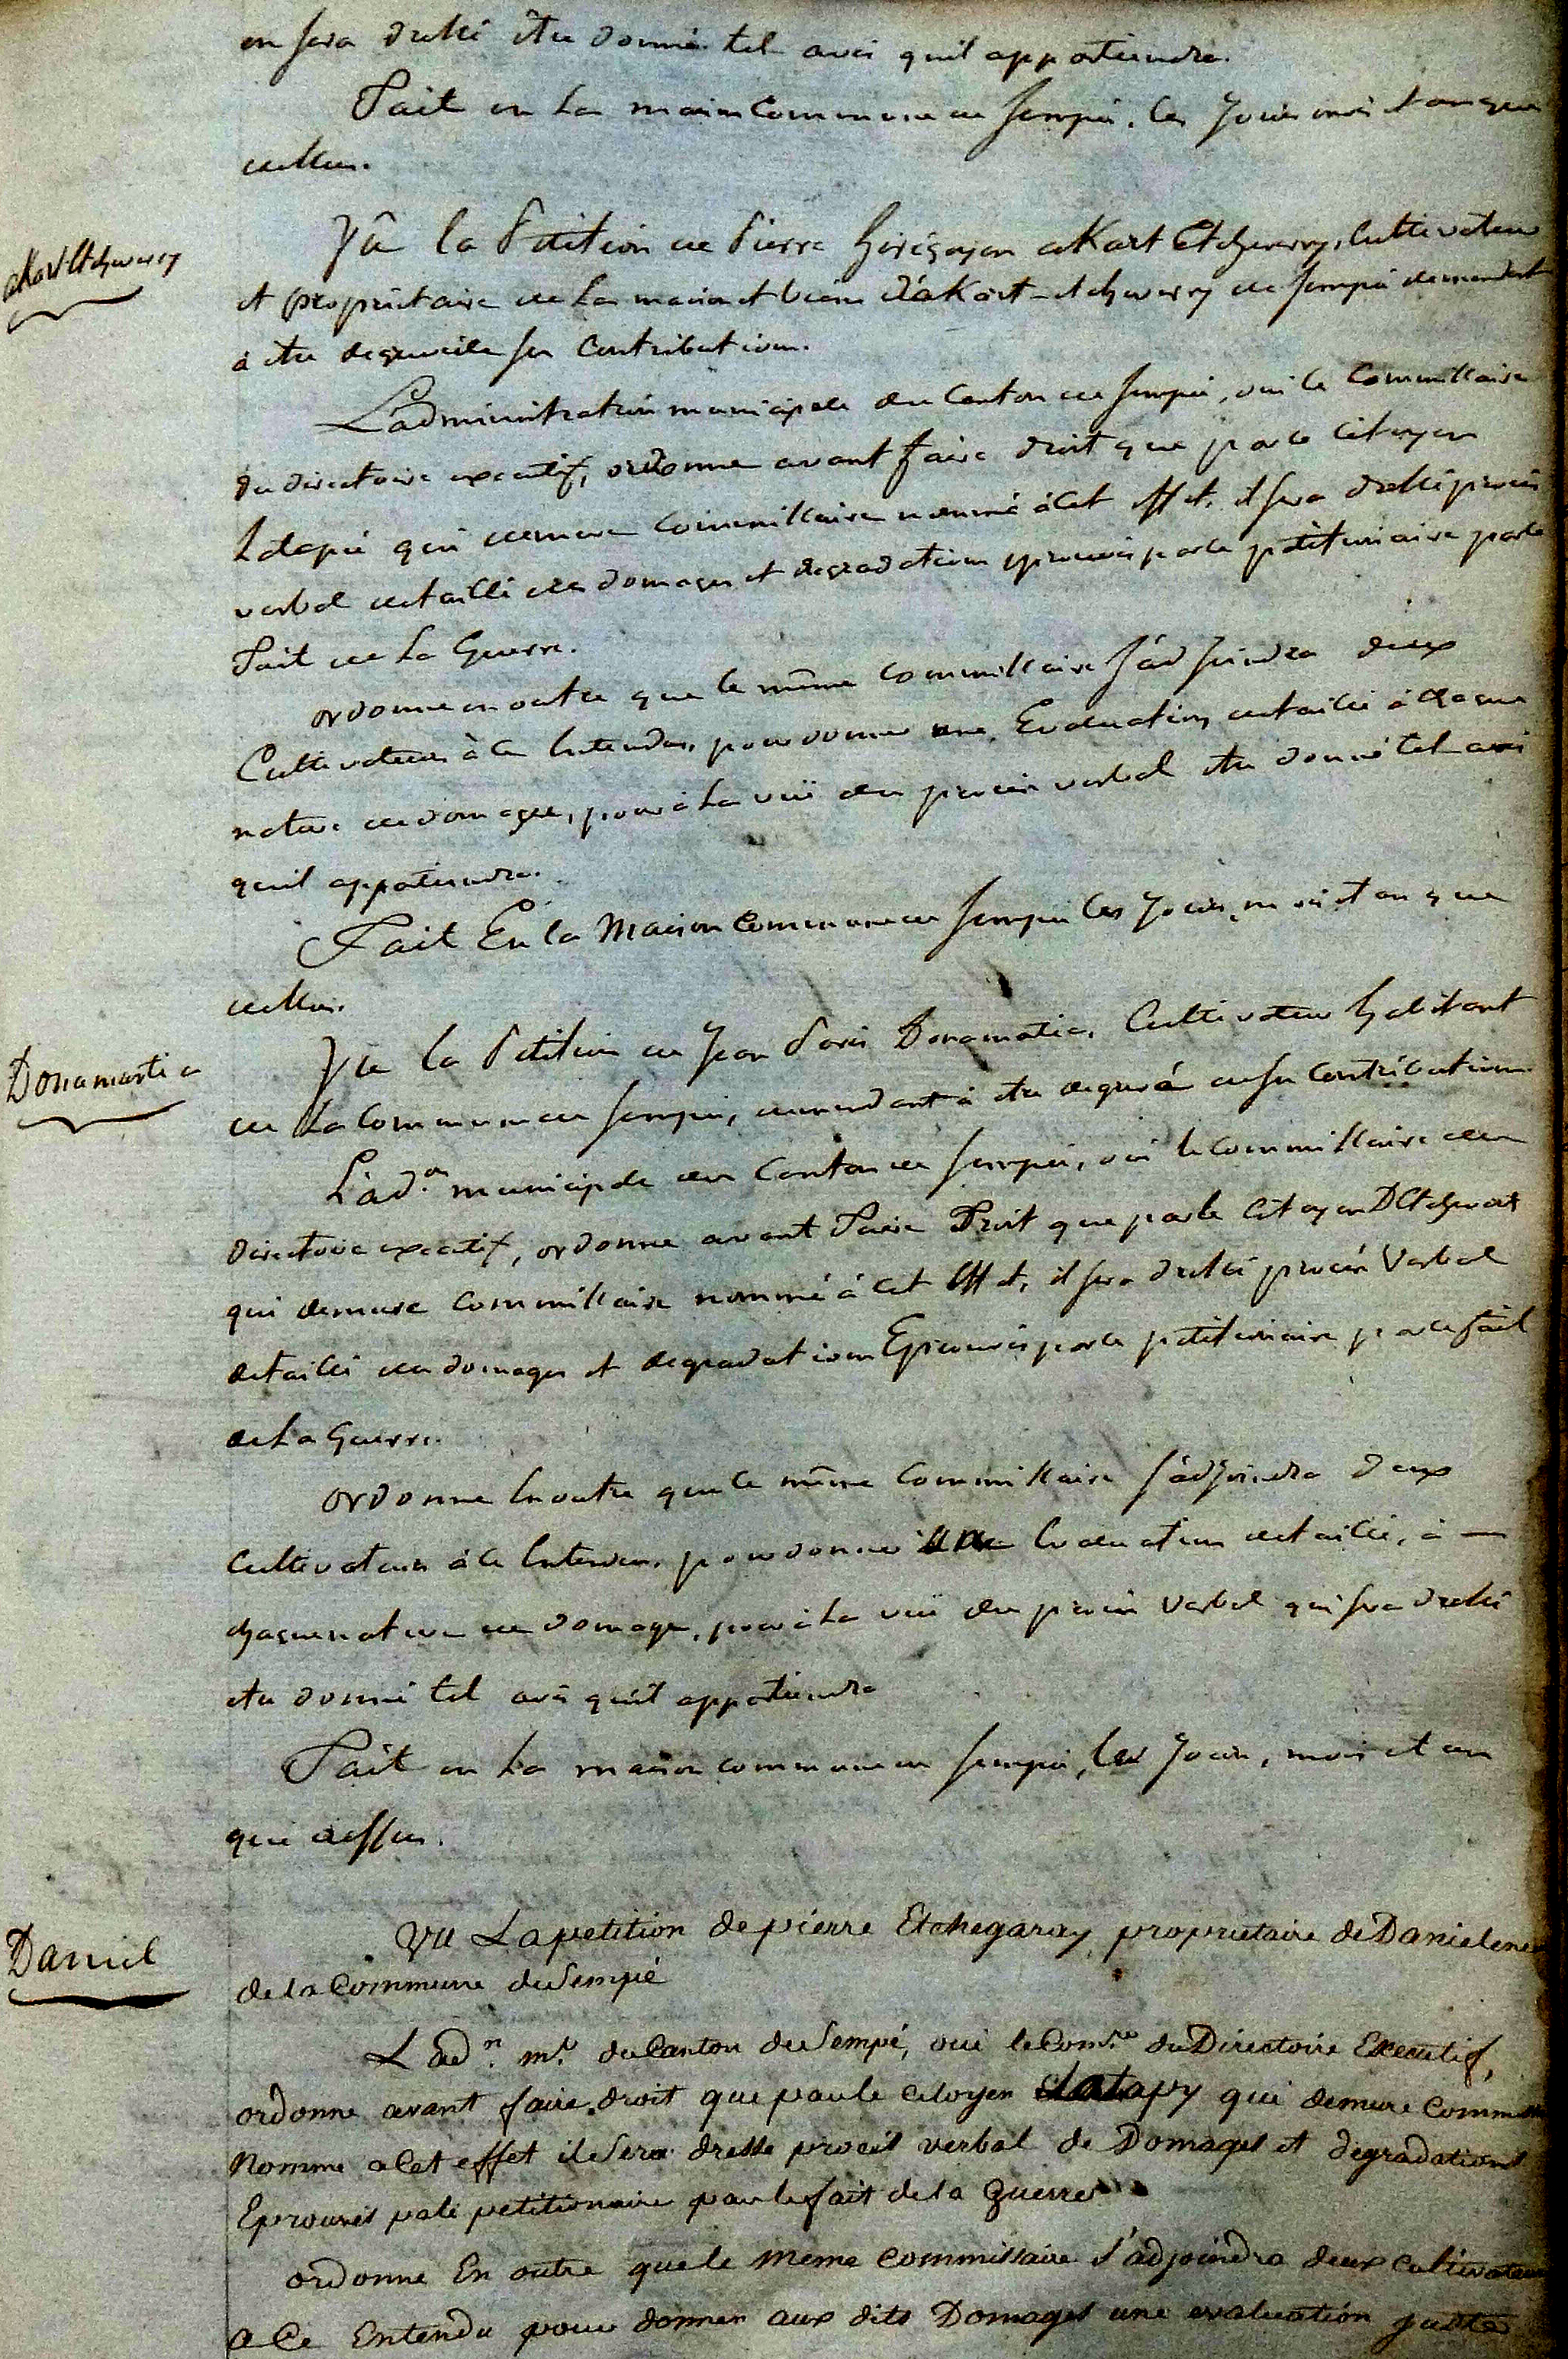 en sera dressé être donné tel avis quil appartiendra.
Fait en la maison Commune de Sempé, les Jour mois et an que
dessus.
akart Etcheverry
Vû la Petition de Pierre hirigoyen akart Etcheverry, Cultivateur
et propriétaire de La maison et biens d'akart-etcheverry de Sempé demandant
à être degrevé de sa Contribution.
L'administration municipale du Canton de Sempé, oui le Commissaire
du directoire executif, ordonne avant faire droit que par le Citoyen
Latapie qui demeure Commissaire nommé à cet effet, il sera dressé procès
verbal detaillé des domages et degradations eprouvés par le petitionaire par le
Fait de La Guerre.
ordonne en outre que le même Commissaire S'adjoindra deux
Cultivateurs à ce Entendus, pour donner une Evaluation detaillée à chaque
nature de domage, pour à La vuë du procès verbal être donné tel avis
quil appartiendra.
Fait En la Maison Commune de Sempé les Jour, mois et an que
dessus.
Donamartia
Vu la Petition de Jean Paris Donamartia, Cultivateur habitant
de La Commune de Sempé, demandant à être degrevé de sa Contribution
L'ad.on municipale du Canton de Sempé, oui le Commissaire du
directoire executif, ordonne avant Faire Droit que par le Citoyen DEtchevers
qui demeure Commissaire nommé à cet Effet, il sera dressé procès Verbal
detaillé des domages et degradations Eprouvés par le petitionaire par le fait
de La Guerre.
ordonne En outre que le même Commissaire S'adjoindra deux
Cultivateurs à ce Entendus, pour donner une Evaluation detaillée, à —
chaque nature de domage, pour à La vuë du procès Verbal qui sera dressé
être donné tel avis quil appartiendra
Fait en La maison commune de Sempé, les Jour, mois et an
que dessus.
Daniel
Vu La petition de pierre Etchegaray, propriétaire de Danielene
de la Commune de Sempé
L'ad.n m.le du Canton de Sempé, oui le Com.re du Directoire Executif,
ordonne avant faire droit que par le citoyen Latapy qui demure Comm
Nomme a Cet effet il Sera dressé procès verbal de Domages et degradations
Eprouvés pale petitionaire par le fait de la Guerre
ordonne En outre que le meme Commissaire S'adjoindra deux cultivateurs
a Ce Entendu pour donner aux dits Domages une evaluation juste